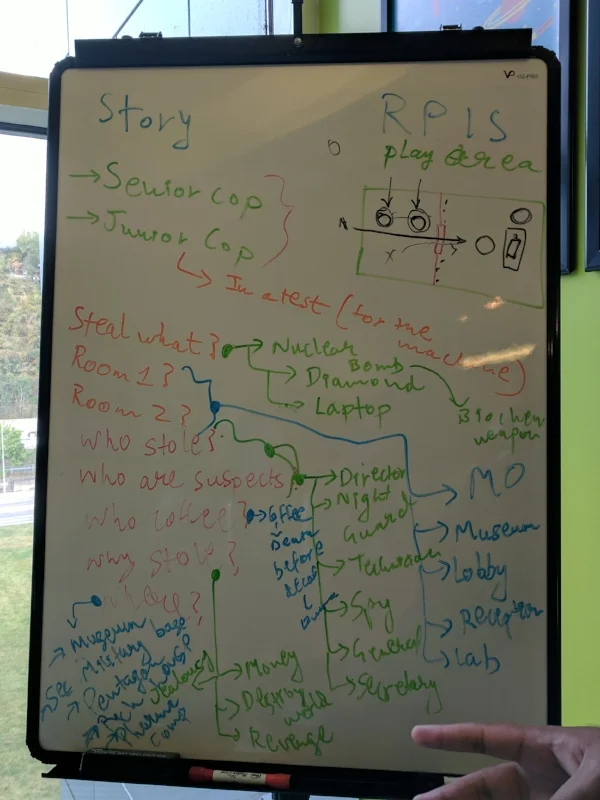 Story
RPIS
play area
→ Senior Cop
→ Junior Cop
A
X
↳ In a test (for the machine)
Steal what?
→ Nuclear Bomb
→ Biochem weapon
→ Diamond
→ Laptop
Room 1?
Room 2?
who stole?
who are suspects
who coffee?
why stole?
where?
→ Director
→ Night Guard
→ Technician
→ Spy
→ General
→ Secretary
before
→ MO
→ Museum
→ Lobby
→ Reception
→ Lab
→ Museum
Military base
→ Pentagon
→ Rich house
→ Pharma comp
Jealousy
→ Money
→ Destroy world
→ Revenge